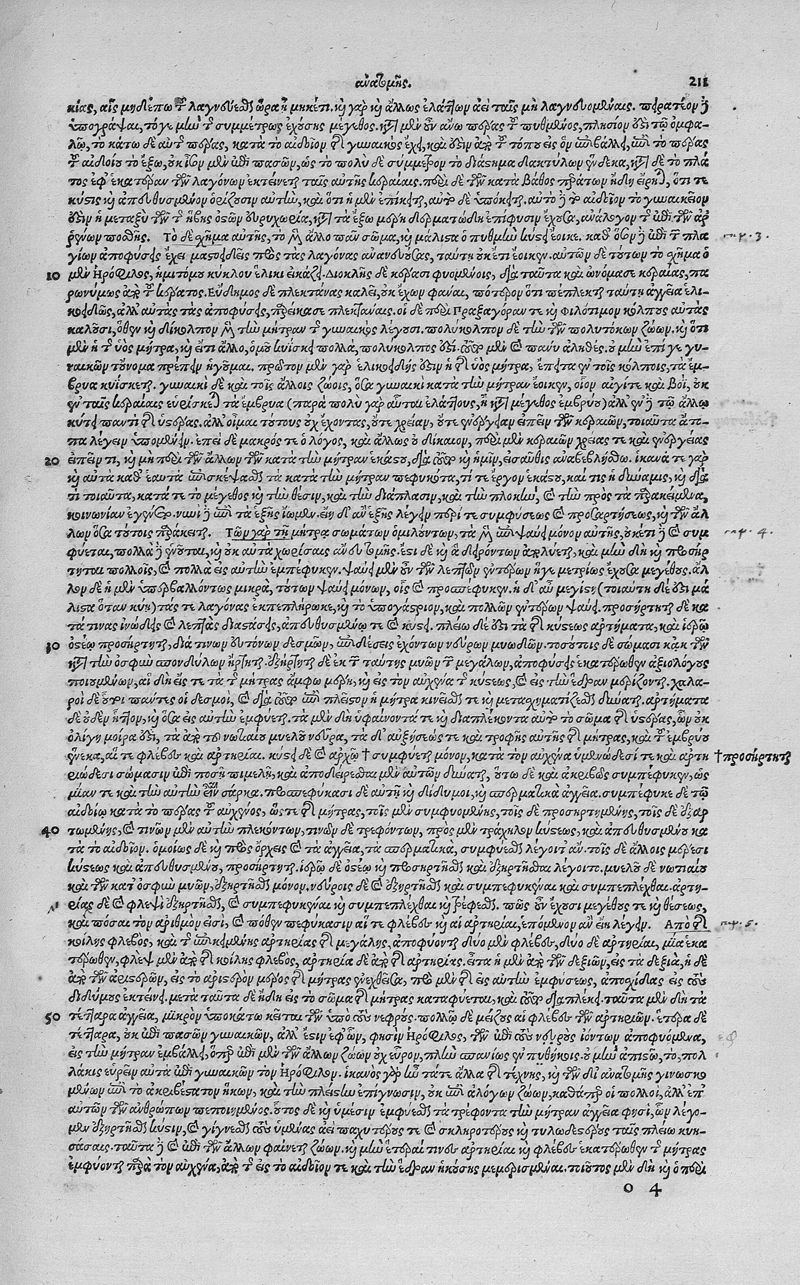 ἀνατομῆς. 211
κίας, αἷς μηδέπω τοῦ λαγνεύεσθαι ὥρα ἢ μηκέτι. καὶ γὰρ καὶ ἄλλως ἐλάττων ἀεὶ ταῖς μὴ λαγνευομέναις. πειρατέον δὲ
ὑπογράψαι, τό γε μὴν τῆς συμμέτρως ἐχούσης μέγεθος. κατὰ μὲν οὖν ἄνω πέρας τοῦ πυθμένος, πλησίον ἐστὶ τῷ ὀμφα-
λῷ, τὸ κάτω δὲ αὖ τὸ πέρας, κατὰ τὸ αἰδοῖον τῆς γυναικὸς ἔχει, καὶ
τοῦ αἰδοίου τὸ ἔξω, οὐκ ἴσον μὲν ἐπὶ πασῶν, ὡς τὸ πολὺ δὲ σύμμετρον τὸ διάστημα δακτύλων ἕνδεκα, κατὰ δὲ τὸ πλά
τος ἐφ' ἑκατέραν τῶν λαγόνων ἐκτείνεται ταῖς αὐτῆς κεραίαις. περὶ δὲ τῶν κατὰ βάθος περάτων ἤδη εἴρηται, ὅτι τε
κύστις καὶ ἀπευθυσμένον ὁρίζουσιν αὐτὴν, καὶ ὅτι ἡ μὲν ἐπίκειται, αὐτὸ δὲ ὑπόκειται. αὐτὸ δὲ τὸ αἰδοῖον τὸ γυναικεῖον
ἐστὶν ἡ μεταξὺ τῶν τῆς ἥβης ὀστῶν εὐρυχωρία, κατὰ τὰ ἔξω μέρη δερματώδη ἐπίφυσιν ἔχουσα, ἀνάλογον τῇ ἐπὶ τῶν ἀρ
ρένων πόσθῃ. Τὸ δὲ σχῆμα αὐτῆς, τὸ μὲν ἄλλο πᾶν σῶμα, καὶ μάλιστα ὁ πυθμὴν κύστει ἔοικε. καθ' ὅσον δὲ ἐπὶ τῶν πλα
γίων ἀποφύσεις ἔχει μαστοειδεῖς πρὸς τὰς λαγόνας ἀνανευούσας, ταύτῃ οὐκ ἔτι ἔοικεν. αὐτῶν δὲ τούτων τὸ σχῆμα ὁ
10 μὲν Ἡρόφιλος, ἡμιτόμου κύκλου ἕλικι εἰκάζει. Διοκλῆς δὲ κέρασι φυομένοις, διὰ ταῦτα καὶ ὠνόμασε κεραίας, πα
ρωνύμως ἀπὸ τοῦ κέρατος. Εὔδημος δὲ πλεκτάνας καλεῖ, οὐκ ἔχω φάναι, πότερον ὅτι πέπλεκται ταύτῃ ἀγγεῖα ἑλι-
κοειδῶς, ἀλλ' αὐτὰς τὰς ἀποφύσεις, προσείκασε πλεκτάναις. οἱ δὲ περὶ Πραξαγόραν τε καὶ Φιλότιμον κόλπους αὐτὰς
καλοῦσι, ὅθεν καὶ δίκολπον μὲν τὴν μήτραν τῆς γυναικὸς λέγουσι. πολύκολπον δὲ τὴν τῶν πολυτόκων ζώων. καὶ ὅτι
μὲν ἡ τῆς ὑὸς μήτρα, καὶ εἴ τι ἄλλο, ὁμοῦ κυΐσκει πολλὰ, πολύκολπός ἐστι. τοῦτο μὲν καὶ πάνυ ἀληθές. ὁ μὴν ἐπί γε γυ-
ναικῶν τοὔνομα πρέπειν ἡγοῦμαι. πρῶτον μὲν γὰρ ἑλικοειδὴς ἐστὶν ἡ τῆς ὑὸς μήτρα, ἔπειτα ἐν τοῖς κόλποις, τὰ ἔμ-
βρυα κυΐσκεται. γυναικὶ δὲ καὶ τοῖς ἄλλοις ζώοις, ὅσα γυναικὶ κατὰ τὴν μήτραν ἔοικεν, οἷον αἰγί τε καὶ βοῒ, οὐκ
ἐν ταῖς κεραίαις εὑρίσκεται τὰ ἔμβρυα (παρὰ πολὺ γὰρ αὗται ἐλάττους, ἢ κατὰ μέγεθος ἐμβρύου) ἀλλ' ἐν τῷ ἄλλῳ
κύτει παντὶ τῆς ὑστέρας. ἀλλ' οἶμαι τόπους οὐκ ἔχοντας, οὔτε χρείαν, οὔτε ἐνέργειαν εἰπεῖν τῶν κεραιῶν, τοιαῦτα ἄτο-
πα λέγειν ὑπομένειν. ἐπεὶ δὲ μακρός τε ὁ λόγος, καὶ ἄλλως οὐ δίκαιον, περὶ μὲν κεραιῶν χρείας τε καὶ ἐνεργείας
20 εἰπεῖν τι, καὶ μὴ περὶ τῶν ἄλλων τῶν κατὰ τὴν μήτραν ἑκάστου, διὰ τοῦτο καὶ ἡμῖν, εἰσαῦθις ἀναβεβλήσθω. ἱκανὰ τε γὰρ
καὶ αὐτὰ καθ' ἑαυτὰ ἐπισκέψασθαι τὰ κατὰ τὴν μήτραν πεφυκότα, τί τε ἔργον ἑκάστου, καὶ τίς ἡ δύναμις, καὶ διὰ
τί τοιαῦτα, κατά τε τὸ μέγεθος καὶ τὴν θέσιν, καὶ τὴν διάπλασιν, καὶ τὴν πλοκὴν, καὶ τὴν πρὸς τὰ προσκείμενα,
κοινωνίαν ἐγένετο. νυνὶ δὲ ἐπὶ τὰ ἑξῆς ἴωμεν. εἴη δ' ἂν ἑξῆς λέγειν περί τε συμφύσεως καὶ προσαρτήσεως, καὶ τῶν ἄλ
λων ὅσα τούτοις πρόσκειται. Τῶν γὰρ τῇ μήτρᾳ σωμάτων ὁμιλούντων, τὰ μὲν ἐπιψαύει μόνον αὐτῆς, οὐκέτι δὲ καὶ συμ
φύεται, πολλὰ δὲ
τηται πολλοῖς, καὶ πολλὰ εἰς αὐτὴν ἐμπέφυκεν. ψαύει μὲν οὖν τῶν λεπτῶν ἐντέρων ἥ γε μετρίως ἔχουσα μέγεθος. ἀλ
λον δὲ ἡ μὲν ὑπερβαλλόντως μικρὰ, τούτων ψαύει μόνων, οἷς καὶ προσπέφυκεν. ἡ δ' αὖ μεγίστη (τοιαύτη δή ἐστι μά
λιστα ὅταν κυήσῃ) τάς τε λαγόνας ἐκπεπλήρωκε, καὶ τὸ ὑπογάστριον, καὶ πολλῶν ἐντέρων ψαύει. προσήρτηται δὲ κα
τά τινας ἰνώδεις καὶ λεπτὰς διατάσεις, ἀπευθυσμένῳ τε καὶ κύστει. πλείω δέ ἐστι τὰ τῆς κύστεως ἀρτήματα, καὶ ἱερῷ
30 ὀστέῳ προσήρτηται, διά τινων εὐτόνων δεσμῶν, ἐπιδέσεις ἐχόντων νεύρων μυωδῶν. τοσούτοις δὲ σώμασι κἀκ τῶν
κατὰ τὴν ὀσφὺν σπονδύλων ἤρτηται. ἐξήρτηται δὲ ἐκ τῆς ταύτης μυῶν τῶν μεγάλων, ἀποφύσεις ἑκατέρωθεν ἀξιολόγους
ποιουμένων, αἳ δὴ εἴς τε τὰ τῆς μήτρας ἄμφω μέρη, καὶ εἰς τὸν αὐχένα τῆς κύστεως, καὶ εἰς τὴν ἕδραν μερίζονται. χαλα-
ροὶ δέ εἰσι πάντες οἱ δεσμοὶ, καὶ διὰ τοῦτο ἐπὶ πλεῖστον ἡ μήτρα κινεῖσθαί τε καὶ μετασχηματίζεσθαι δύναται. ἀρτήματα
δὲ οὐδὲν ἧττον, καὶ ὅσα εἰς αὐτὴν ἐμφύεται. τὰ μὲν δὴ ὑφαίνοντά τε καὶ διαπλέκοντα αὐτὸ τὸ σῶμα τῆς ὑστέρας, ὧν οὐκ
ὀλίγη μοῖρά ἐστι, τὰ ἀπὸ τοῦ νωτιαίου μυελοῦ νεῦρα, τὰ δὲ αὐξήσεώς τε καὶ τροφῆς αὐτῆς τῆς μήτρας, καὶ τοῦ ἐμβρύου
ἕνεκα, αἵ τε φλέβες καὶ ἀρτηρίαι. κύστει δὲ καὶ ἀρχῷ † συμφύεται μόνον, κατὰ τὸν αὐχένα ὑμενώδεσί τε καὶ ἀρτη †προσήρτηται
ριώδεσι σώμασιν
μίαν τε καὶ τὴν αὐτὴν εἶναι σάρκα. προσπεφύκασι δὲ αὐτῇ καὶ δίδυμοι, καὶ σπερματικὰ ἀγγεῖα. συμπέφυκε δὲ τῷ
αἰδοίῳ κατὰ τὸ πέρας τοῦ αὐχένος, ὥστε τῆς μήτρας, τοῖς μὲν συμφυομένης, τοῖς δὲ προσηρτημένης, τοῖς δὲ ἐξηρ
40 τωμένης, καὶ τινῶν μὲν αὐτὴν πλεκόντων, τινῶν δὲ τρεφόντων, πρὸς μὲν τράχηλον κύστεως, καὶ ἀπευθυσμένου κα
τὰ τὸ αἰδοῖον. ὁμοίως δὲ καὶ πρὸς ὄρχεις καὶ τὰ ἀγγεῖα, τὰ σπερματικὰ, συμφύεσθαι λέγοιτ' ἄν. τοῖς δὲ ἄλλοις μέρεσι
κύστεως καὶ ἀπευθυσμένου, προσήρτηται. ἱερῷ δὲ ὀστέῳ καὶ προσηρτῆσθαι καὶ ἐξηρτῆσθαι λέγοιτο. μυελοῦ δὲ νωτιαίου
καὶ τῶν κατ' ὀσφὺν μυῶν, ἐξηρτῆσθαι μόνον. νεύροις δὲ καὶ ἐξηρτῆσθαι καὶ συμπεφυκέναι καὶ συμπεπλέχθαι. ἀρτη-
ρίαις δὲ καὶ φλεψὶ ἐξηρτῆσθαι, καὶ συμπεφυκέναι καὶ συμπεπλέχθαι καὶ τρέφεσθαι. πῶς οὖν ἔχουσι μεγέθους τε καὶ θέσεως,
καὶ πόσαι τὸν ἀριθμὸν εἰσὶ, καὶ πόθεν πεφύκασιν αἵ τε φλέβες καὶ αἱ ἀρτηρίαι, ἑπόμενον ἂν εἴη λέγειν. Ἀπὸ τῆς
κοίλης φλεβὸς, καὶ τῆς ἐπικειμένης ἀρτηρίας τῆς μεγάλης, ἀποφύονται δύο μὲν φλέβες, δύο δὲ ἀρτηρίαι, μία ἑκα
τέρωθεν, φλὲψ μὲν ἀπὸ τῆς κοίλης φλεβὸς, ἀρτηρία δὲ ἀπὸ τῆς ἀρτηρίας. εἶτα ἡ μὲν ἀπὸ τῶν δεξιῶν, εἰς τὰ δεξιὰ, ἡ δὲ
ἀπὸ τῶν ἀριστερῶν, εἰς τὸ ἀριστερὸν μέρος τῆς μήτρας ἐνεχθεῖσα, πρὸ μὲν τῆς εἰς αὐτὴν ἐμφύσεως, ἀποσχίδας εἰς τοὺς
διδύμους ἐκτείνει. μετὰ ταῦτα δὲ ἤδη εἰς τὸ σῶμα τῆς μήτρας καταφύεται, καὶ τοῦτο διαπλέκει. ταῦτα μὲν δὴ τὰ
50 τέτταρα ἀγγεῖα, μικρὸν ὑποκάτω κεῖται τῶν ὑπὸ τοὺς νεφρούς. πολλῷ δὲ μείζους αἱ φλέβες τῶν ἀρτηριῶν. ἕτερα δὲ
τέτταρα, οὐκ ἐπὶ πασῶν γυναικῶν, ἀλλ' ἔστιν ἐφ' ὧν, φησὶν Ἡρόφιλος, τῶν ἐπὶ τοὺς νεφροὺς ἰόντων ἀποφυόμενα,
εἰς τὴν μήτραν ἐμβάλλει, ὅπερ ἐπὶ μὲν τῶν ἄλλων ζώων οὐχ εὗρον, πλὴν σπανίως ἐν πιθήκοις. οὐ μὴν ἀπιστῶ, τὸ, πολ
λάκις εὑρεῖν αὐτὰ ἐπὶ γυναικῶν τὸν Ἡρόφιλον. ἱκανὸς γὰρ ὢν τά τε ἄλλα τῆς τέχνης, καὶ τῶν δι' ἀνατομῆς γινωσκο
μένων ἐπὶ τὸ ἀκριβέστατον ἥκων, καὶ τὴν πλείστην ἐπίγνωσιν, οὐκ ἐπ' ἀλόγων ζώων, καθάπερ οἱ πολλοὶ, ἀλλ' ἐπ'
αὐτῶν τῶν ἀνθρώπων πεποιημένος. οὗτος δὲ καὶ ὑμέσιν ἐμφύεσθαι τὰ τρέφοντα τὴν μήτραν ἀγγεῖά φησι, ὧν λέγο-
μεν ἐξηρτῆσθαι κύστιν, καὶ γίνεσθαι τοὺς ὑμένας ἀεὶ παχυτέρους τε καὶ σκληροτέρους καὶ τυλωδεστέρους ταῖς πλείω κυη-
σάσαις. ταῦτα δὲ καὶ ἐπὶ τῶν ἄλλων φαίνεται ζώων. καὶ μὴν ἕτεραί τινες ἀρτηρίαι καὶ φλέβες ἑκατέρωθεν τῆς μήτρας
ἐμφύονται παρὰ τὸν αὐχένα, ἀπὸ τῶν εἰς τὸ αἰδοῖόν τε καὶ τὴν ἕδραν ἡκούσης μεμερισμέναι. πιστὸς μὲν δὴ καὶ ὁ περὶ
o 4